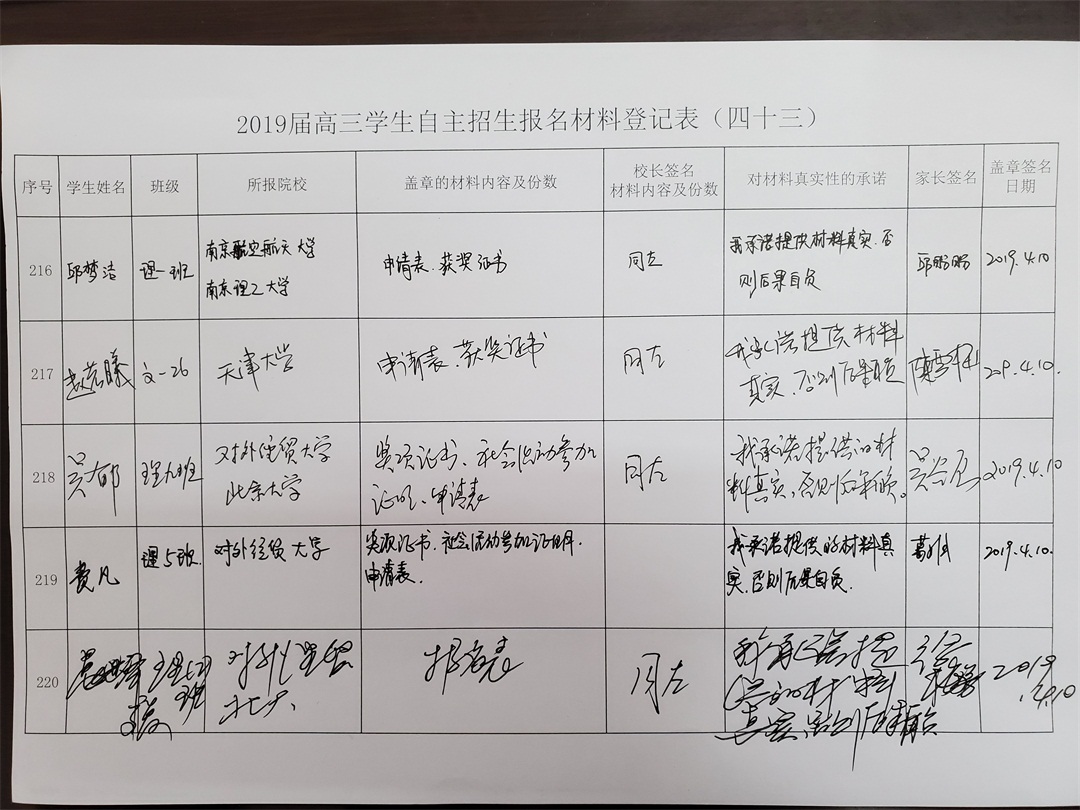 2019届高三学生自主招生报名材料登记表（四十三）
序号 学生姓名 班级 所报院校 盖章的材料内容及份数 校长签名 对材料真实性的承诺 家长签名 盖章签名
材料内容及份数 日期
216 邱梦洁 理一班 南京航空航天大学 申请表、获奖证书 同左 我承诺提供材料真实，否 邱 2019.4.10
南京理工大学 则后果自负
217 赵 曦 文-26 天津大学 申请表、获奖证书 同左 我承诺提供材料 陈雪 2019.4.10.
真实，否则后果自负
218 吴郁 理九班 对外经贸大学 奖项证书、社会活动参加 同左 我承诺提供的材 吴 2019.4.10
北京大学 证明、申请表 料真实，否则后果自负。
219 费凡 理5班. 对外经贸大学 奖项证书、社会活动参加证明、 我承诺提供的材料真 葛 2019.4.10.
申请表. 实，否则后果自负.
220 理 对外经贸 报名表 同左 我承诺提 2019
班 北大 供的材料 .4.10
真实，否则后果自负